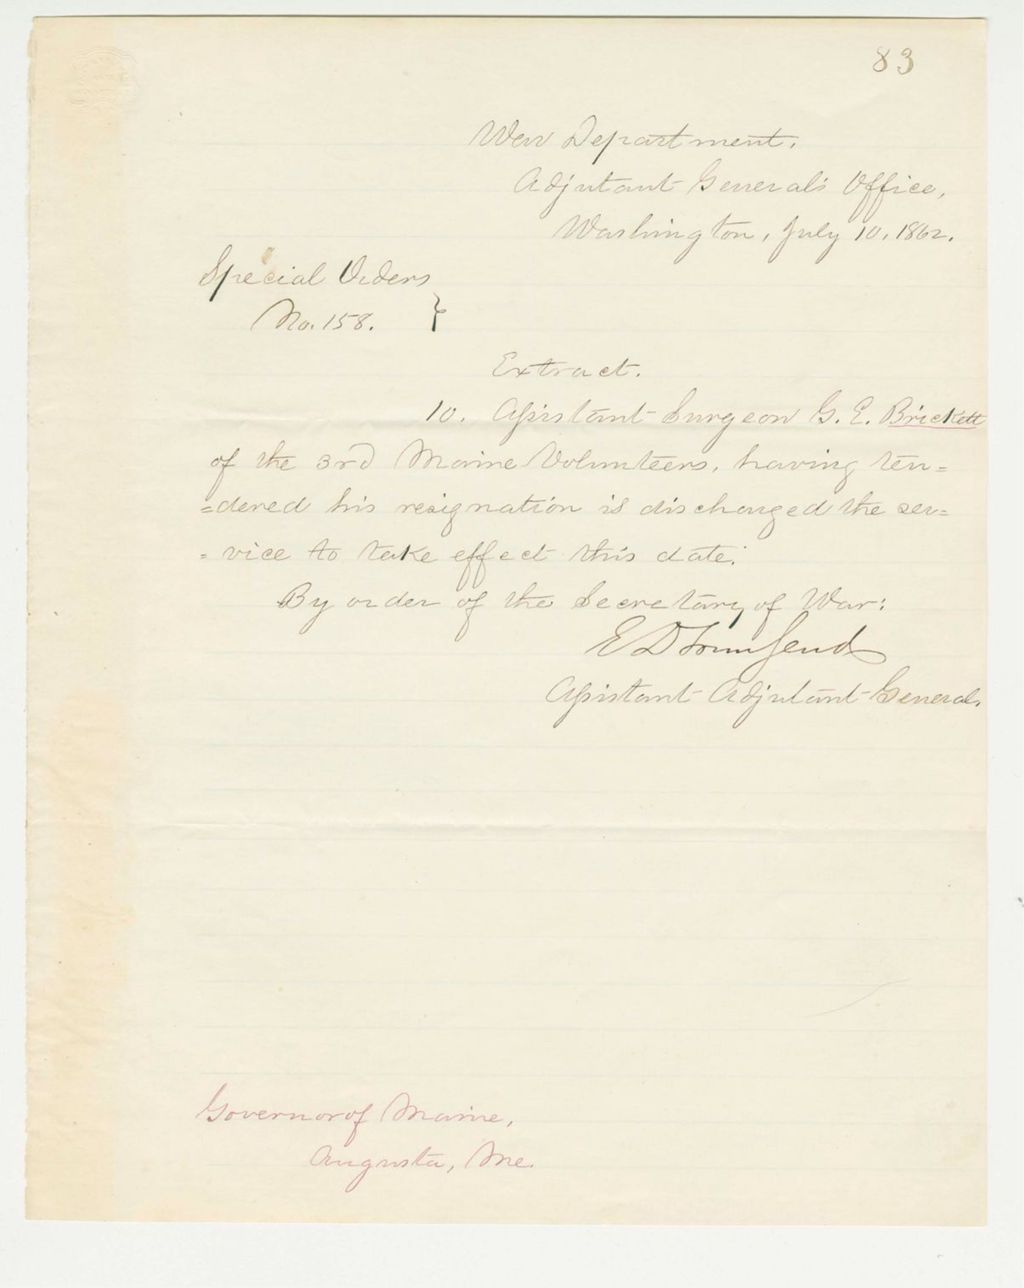 83
War Department,
Adjutant General's Office,
Washington, July 10, 1862.
Special Orders
No. 158. }
Extract.
10. Assistant Surgeon G. E. Brickett
of the 3rd Maine Volunteers, having ten=
=dered his resignation is discharged the ser=
=vice to take effect this date.
By order of the Secretary of War:
E D Townsend
Assistant Adjutant General.
Governor of Maine,
Augusta, Me.